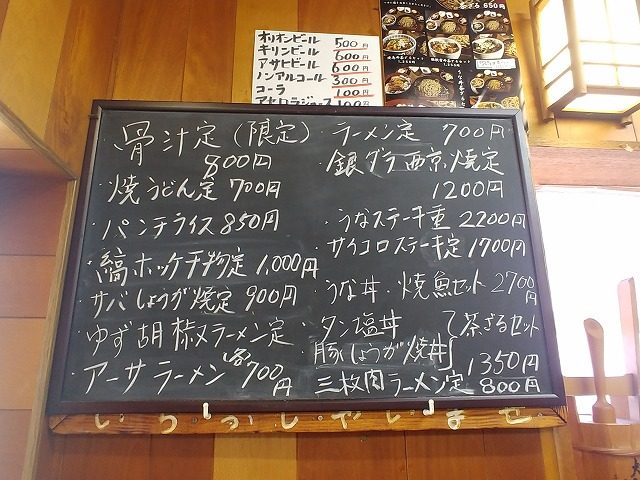 オリオンビール 500円
キリンビール 600円
アサヒビール 600円
ノンアルコール 300円
コーラ 100円
アセロラジュース 100円
650円
・骨汁定（限定）
800円
・焼うどん定 700円
・パンチライス 850円
・縞ホッケ干物定 1,000円
・サバしょうが焼定 900円
・ゆず胡椒ラーメン定
・アーサラーメン 700円
・ラーメン定 700円
・銀ダラ西京焼定
1200円
・うなステーキ重 2200円
サイコロステーキ定 1700円
・うな丼・焼魚セット 2700円
・タン塩丼 て茶ざるセット
豚しょうが焼丼 1350円
三枚肉ラーメン定 800円
いらっしゃいませ